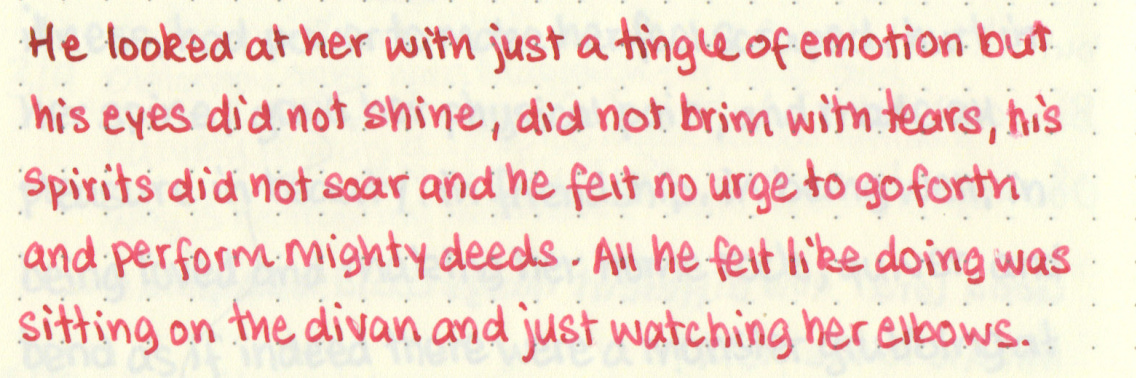 He looked at her with just a tingle of emotion but
his eyes did not shine, did not brim with tears, his
spirits did not soar and he felt no urge to go forth
and perform mighty deeds. All he felt like doing was
sitting on the divan and just watching her elbows.